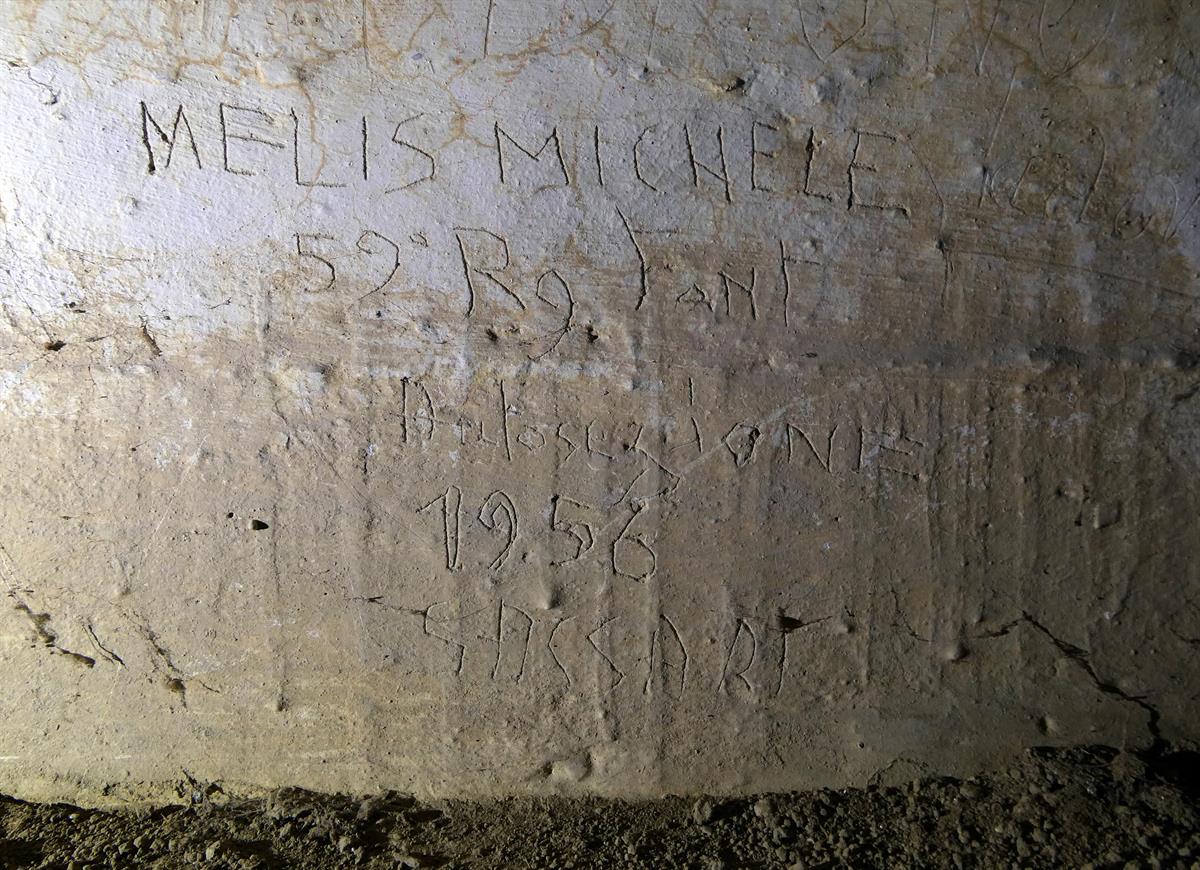 MELIS MICHELE
59° Rg Fant
AutosezIONE
1956
SASSARI